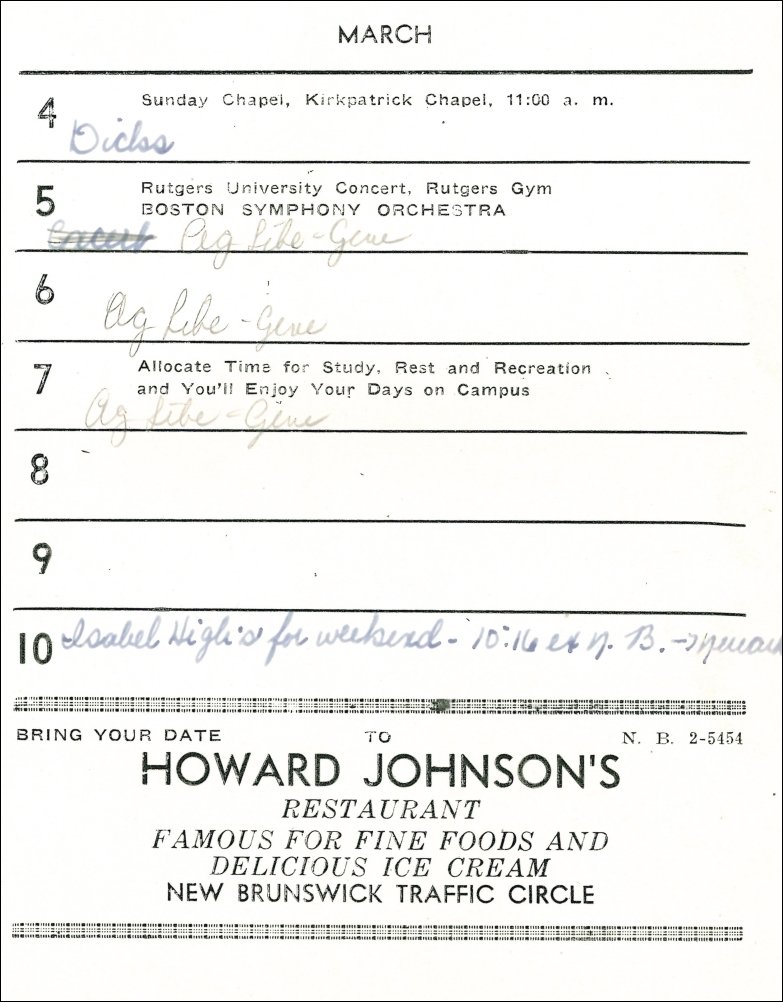 MARCH
4 Sunday Chapel, Kirkpatrick Chapel, 11:00 a. m.
Dicks
5 Rutgers University Concert, Rutgers Gym
BOSTON SYMPHONY ORCHESTRA
Ag Libe - Gene
6
Ag Libe - Gene
7 Allocate Time for Study, Rest and Recreation
and You'll Enjoy Your Days on Campus
Ag Libe - Gene
8
9
10 Isabel High's for weekend - 10:16 ex N. B. → Newark
BRING YOUR DATE TO N. B. 2-5454
HOWARD JOHNSON'S
RESTAURANT
FAMOUS FOR FINE FOODS AND
DELICIOUS ICE CREAM
NEW BRUNSWICK TRAFFIC CIRCLE